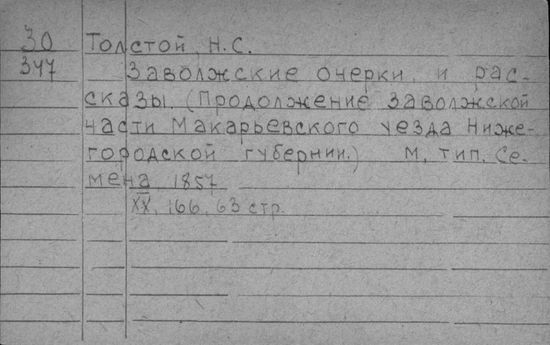 30 Толстой, Н.С.
347 Заволжские очерки и рас-
сказы. (Продолжение Заволжской
части Макарьевского уезда Ниже-
городской губернии.) М, тип. Се-
мена 1857
XX, 166, 63 стр.